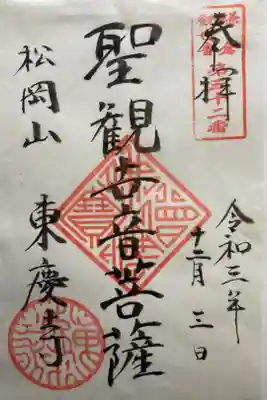 奉拝
第三十二番
令和三年
十二月三日
聖観世音菩薩
松岡山
東慶寺